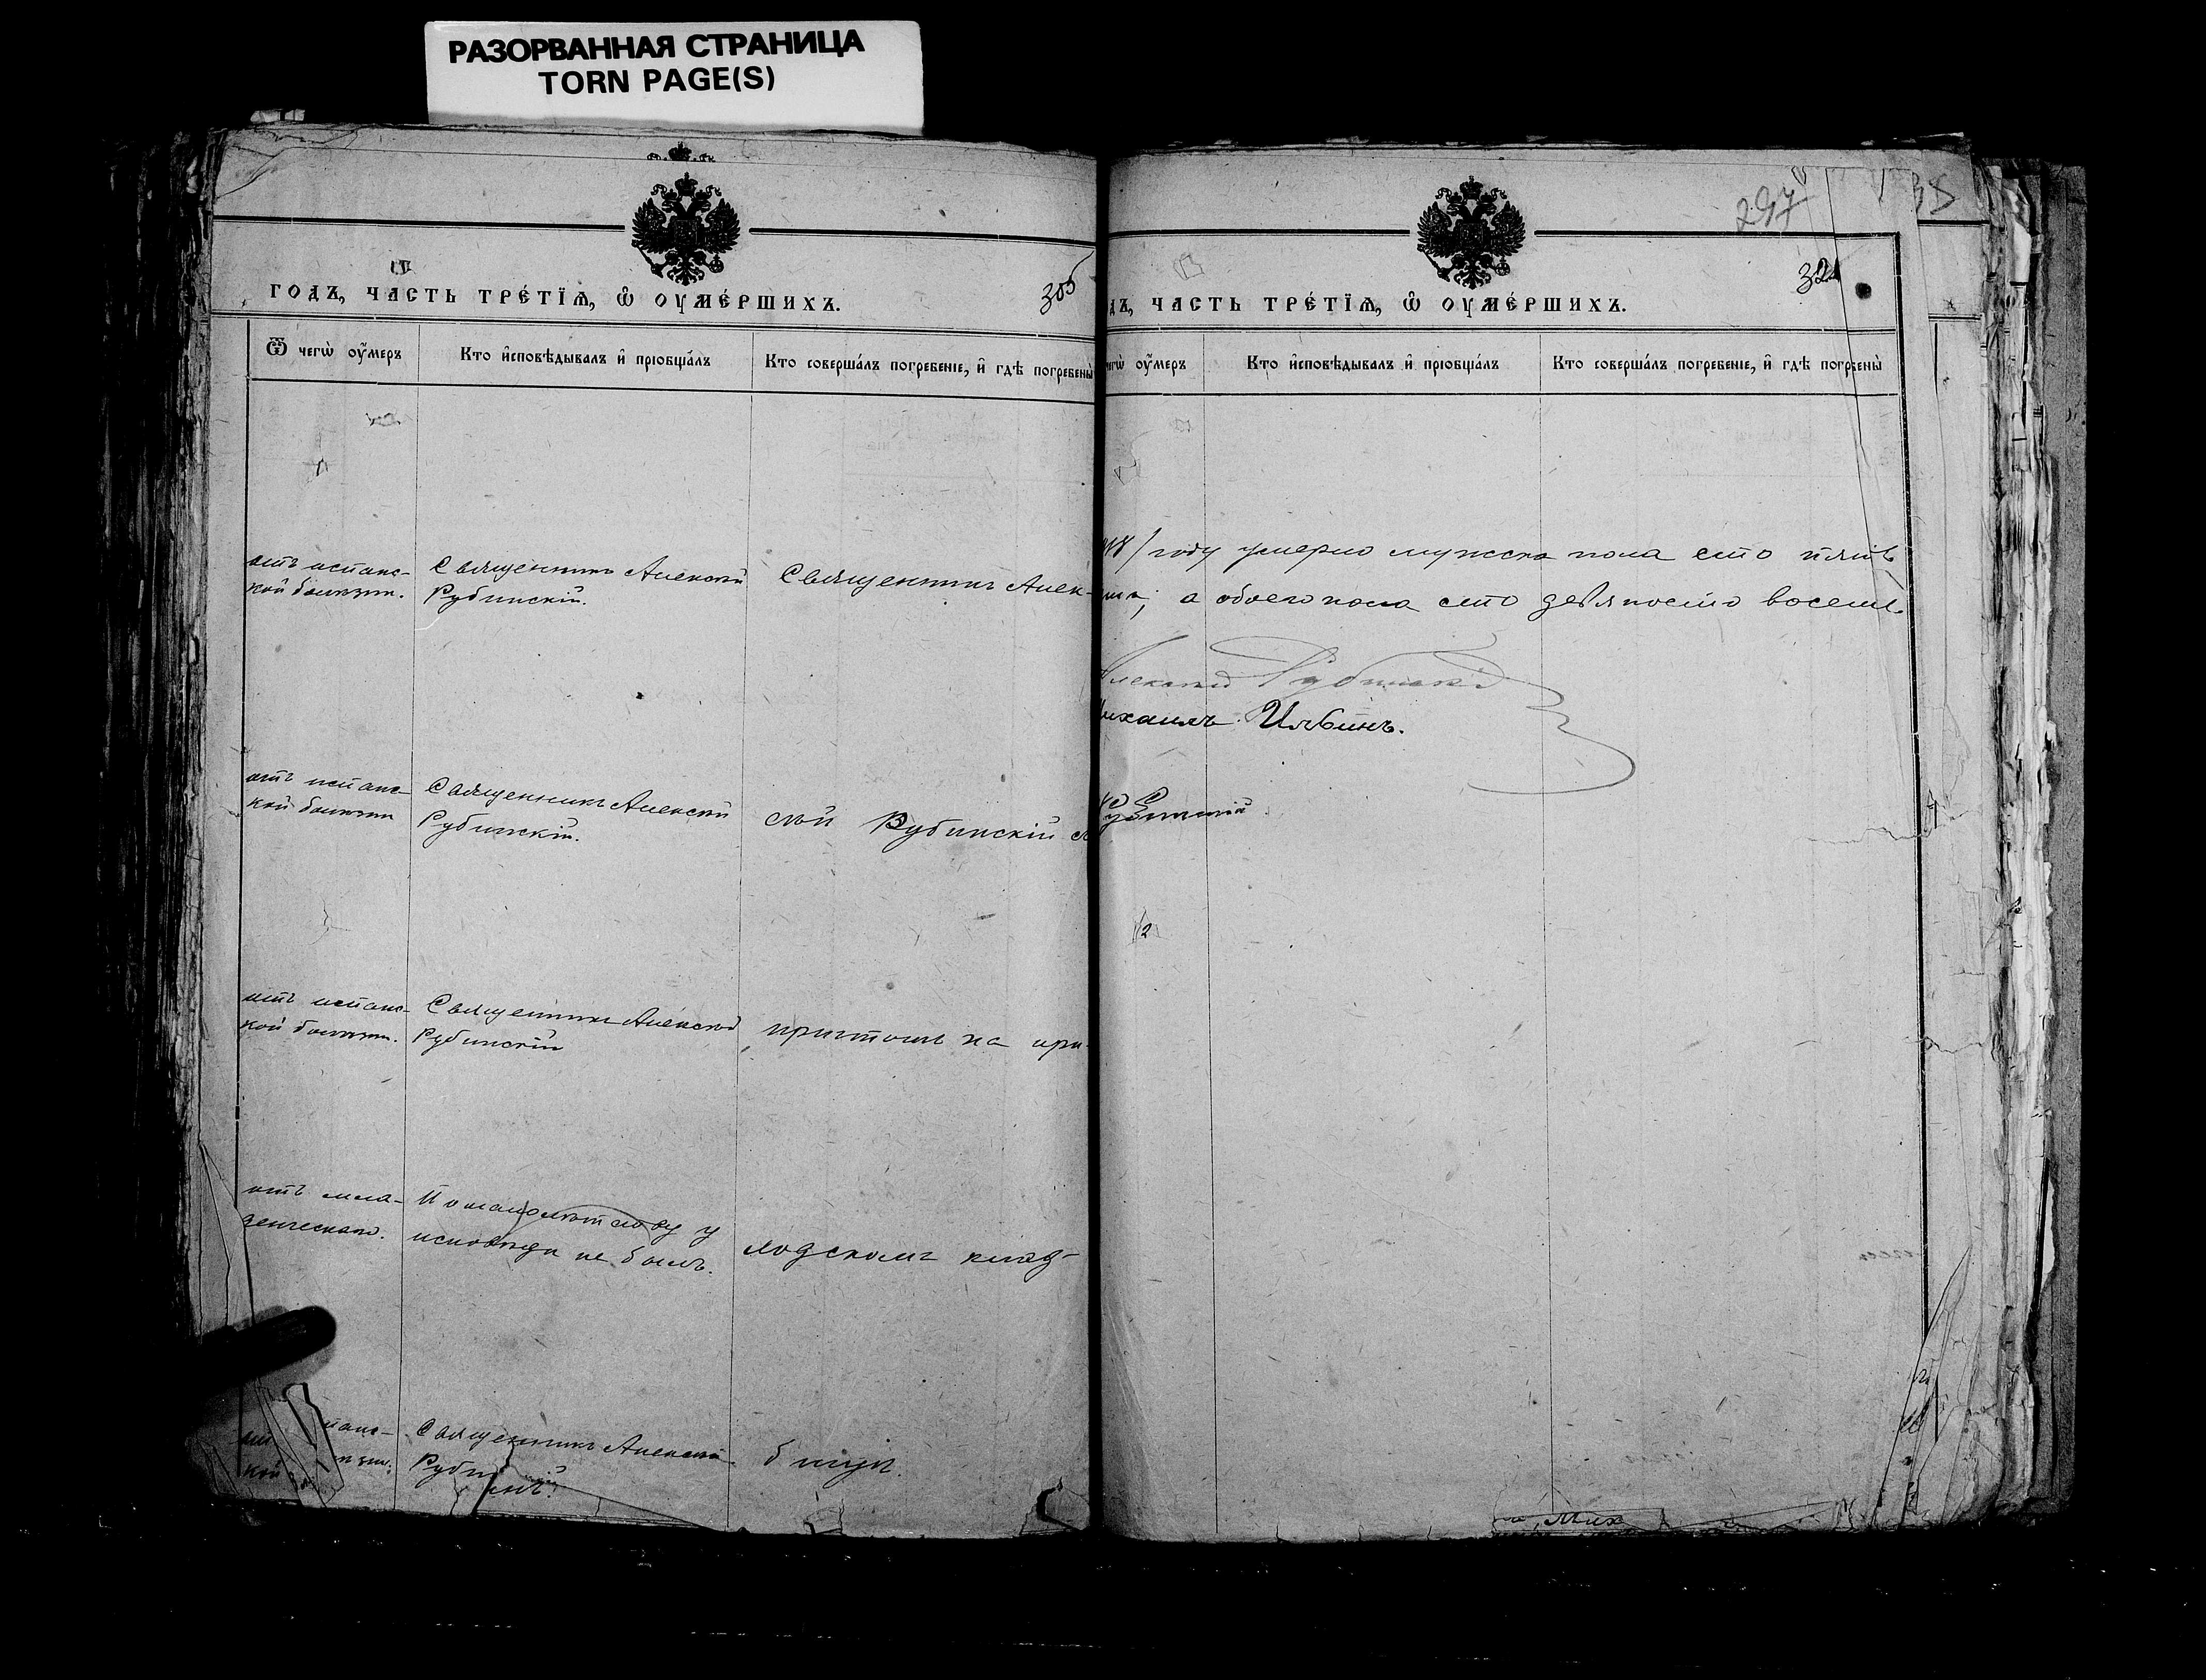 РАЗОРВАННАЯ СТРАНИЦА
TORN PAGE(S)
305
ГОДЪ, ЧАСТЬ ТРЕ́ТЇѦ, Ѽ ОУМЕ́РШИХЪ.
Ѿ чегѡ̀ оу҆́меръ
Кто и҆сповѣ́дывалъ и҆ прїобща́лъ
Кто соверша́лъ погребенїе, и҆ гдѣ̀ погребены̀
отъ испанс-
кой болѣзни.
Священникъ Алексѣй
Рубинскій.
Священникъ Алек-
отъ испанс-
кой болѣзни
Священникъ Алексѣй
Рубинскій.
сѣй Рубинскій
отъ испанс-
кой болѣзни.
Священникъ Алексѣй
Рубинскій
причтомъ на при-
отъ мла-
денческаго.
По малолѣтству у
исповѣди не былъ.
ходскомъ клад-
панс-
кой
Священникъ Алексѣй
Руби
бищѣ.
297
35
дъ, ЧАСТЬ ТРЕ́ТЇѦ, Ѽ ОУМЕ́РШИХЪ.
чегѡ̀ оу҆́меръ
Кто и҆сповѣ́дывалъ и҆ прїобща́лъ
Кто соверша́лъ погребенїе, и҆ гдѣ̀ погребены̀
году умерло мужска пола сто пять
а обоего пола сто девяносто восемь
Алексѣй Рубинскій
Михаилъ Ильинъ.
2
Мих